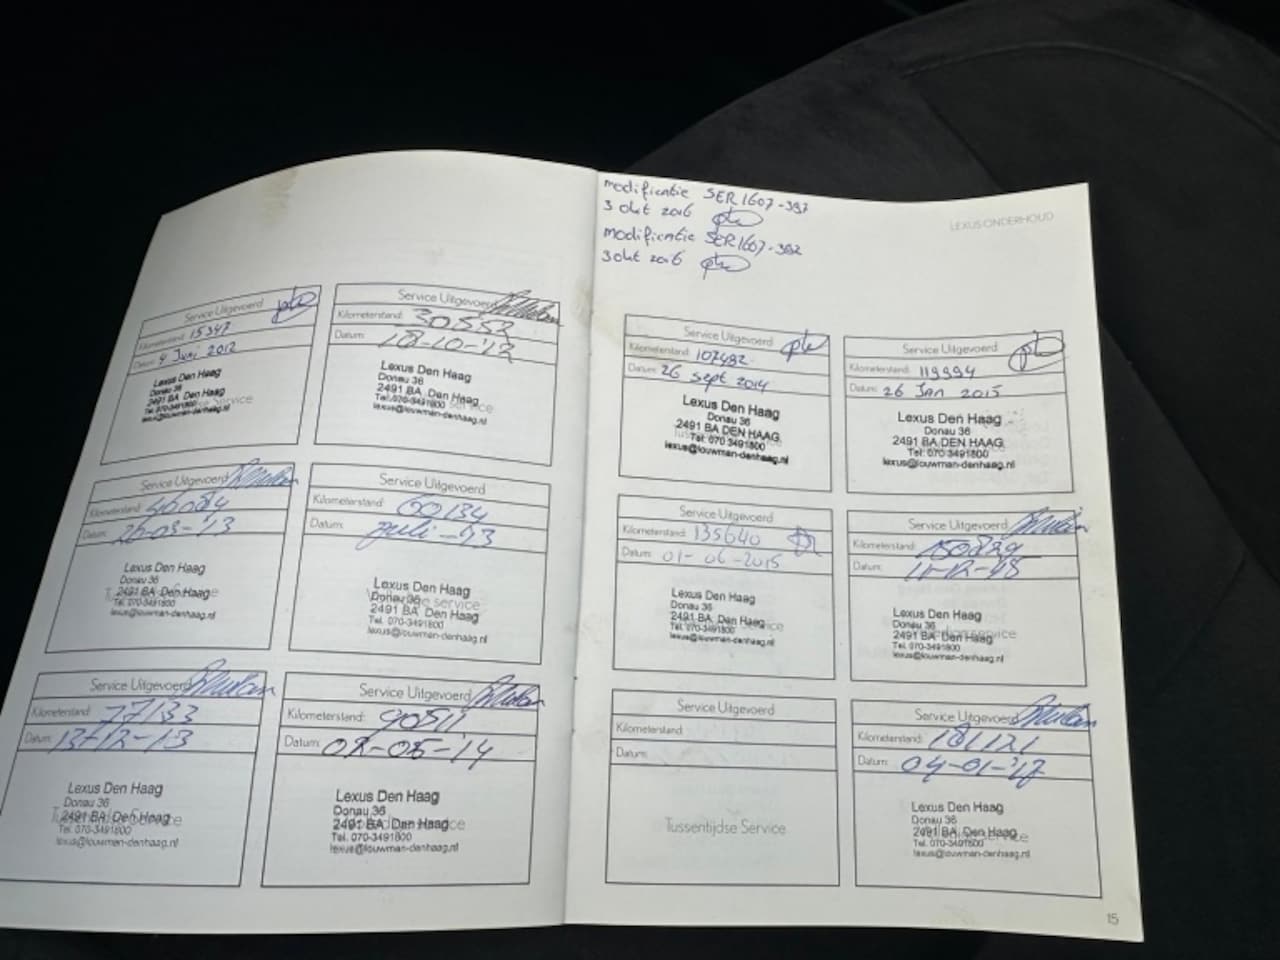 Service Uitgevoerd
Kilometerstand: 15347
Datum: 4 Juni 2012
Lexus Den Haag
Donau 36
2491 BA Den Haag
Tel. 070-3491800
lexus@louwman-denhaag.nl
Service Uitgevoerd
Kilometerstand: 30552
Datum: 18-10-'12
Lexus Den Haag
Donau 36
2491 BA Den Haag
Tel. 070-3491800
lexus@louwman-denhaag.nl
Service Uitgevoerd
Kilometerstand: 46084
Datum: -03-'13
Lexus Den Haag
Donau 36
2491 BA Den Haag
Tel. 070-3491800
lexus@louwman-denhaag.nl
Service Uitgevoerd
Kilometerstand: 60134
Datum: juli-13
Lexus Den Haag
Donau 36
2491 BA Den Haag
Tel. 070-3491800
lexus@louwman-denhaag.nl
Service Uitgevoerd
Kilometerstand: 77133
Datum: 13-12-13
Lexus Den Haag
Donau 36
2491 BA Den Haag
Tel. 070-3491800
lexus@louwman-denhaag.nl
Service Uitgevoerd
Kilometerstand: 90511
Datum: 02-05-'14
Lexus Den Haag
Donau 36
2491 BA Den Haag
Tel. 070-3491800
lexus@louwman-denhaag.nl
modificatie SER1607-397
3 okt 2016
modificatie SER1607-392
3 okt 2016
LEXUS ONDERHOUD
Service Uitgevoerd
Kilometerstand: 107492
Datum: 26 sept 2014
Lexus Den Haag
Donau 36
2491 BA DEN HAAG
Tel: 070 3491800
lexus@louwman-denhaag.nl
Service Uitgevoerd
Kilometerstand: 119994
Datum: 26 Jan 2015
Lexus Den Haag
Donau 36
2491 BA DEN HAAG
Tel: 070 3491800
lexus@louwman-denhaag.nl
Service Uitgevoerd
Kilometerstand: 135640
Datum: 01-06-2015
Lexus Den Haag
Donau 36
2491 BA Den Haag
Tel. 070-3491800
lexus@louwman-denhaag.nl
Service Uitgevoerd
Kilometerstand: 150829
Datum: 11-12-'15
Lexus Den Haag
Donau 36
2491 BA Den Haag
Tel. 070-3491800
lexus@louwman-denhaag.nl
Service Uitgevoerd
Kilometerstand:
Datum:
Tussentijdse Service
Service Uitgevoerd
Kilometerstand: 181121
Datum: 04-01-'17
Lexus Den Haag
Donau 36
2491 BA Den Haag
Tel. 070-3491800
lexus@louwman-denhaag.nl
15